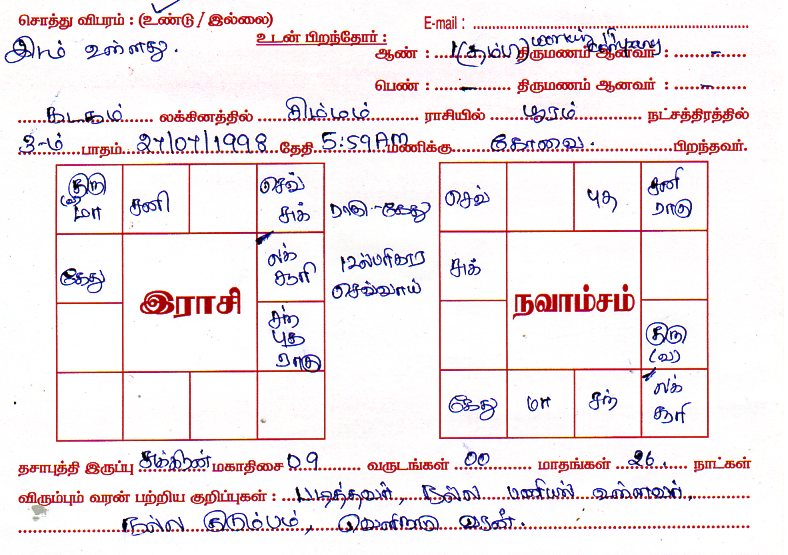 சொத்து விபரம் : (உண்டு / இல்லை) E-mail :
இடம் உள்ளது.
உடன் பிறந்தோர் :
ஆண் : 1(தம்பி) திருமணம் ஆனவர் : -
பெண் : - திருமணம் ஆனவர் : -
கடகம் லக்கினத்தில் சிம்மம் ராசியில் பூரம் நட்சத்திரத்தில்
3-ம் பாதம் 27/07/1998 தேதி 5:59 AM மணிக்கு கோவை. பிறந்தவர்.
குரு (வ) மா
சனி
செவ் சுக்
கேது
லக் சூரி
இராசி
சந் புத ராகு
ராகு-கேது
செவ்வாய்
செவ்
புத
சனி ராகு
சுக்
நவாம்சம்
குரு (வ)
கேது
மா
சந்
லக் சூரி
தசாபுத்தி இருப்பு சுக்கிரன் மகாதிசை 09 வருடங்கள் 00 மாதங்கள் 26 நாட்கள்
விரும்பும் வரன் பற்றிய குறிப்புகள் : படித்தவர், நல்ல பணியில் உள்ளவர்,
நல்ல குடும்பம், வரன்.